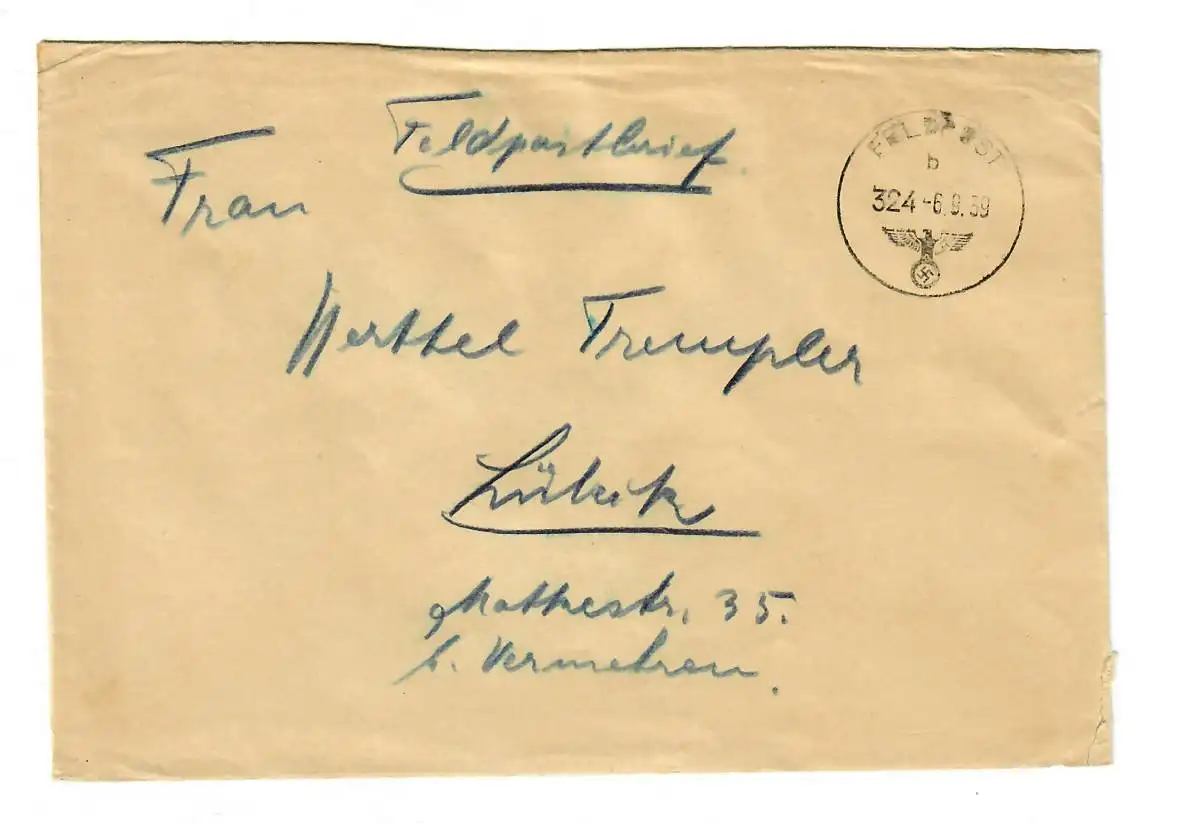 Feldpostbrief.
Frau
FELDPOST
b
324 -6.9.39
Herthel Trempler
Lübeck
Moltkestr. 35.
b. Vermehren.